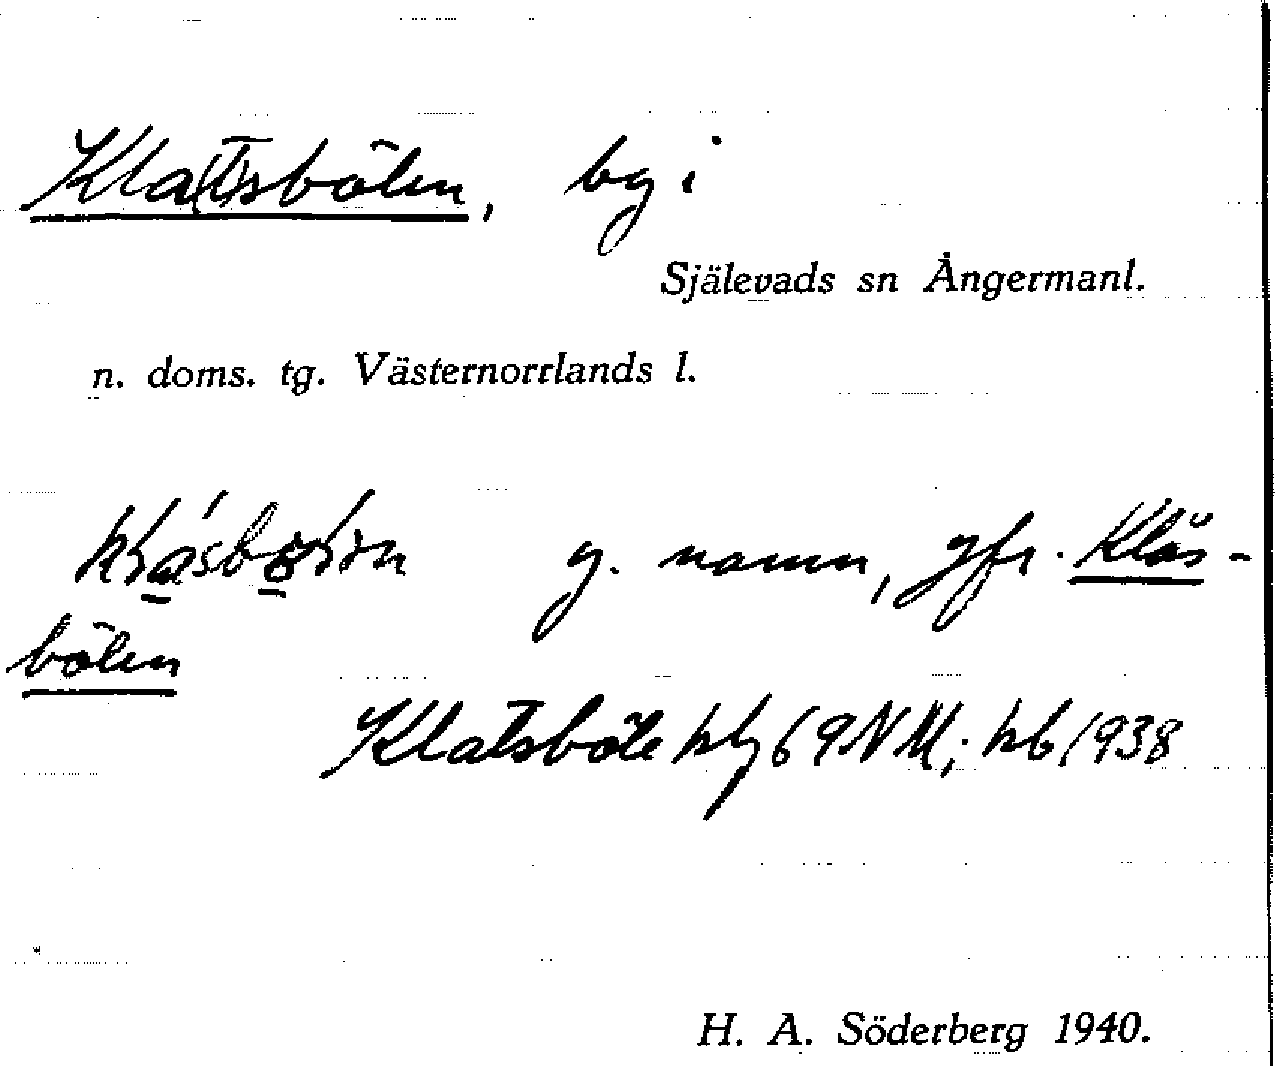 Kla(t)sbölen, by i
Själevads sn Ångermanl.
n. doms. tg. Västernorrlands l.
g. namn, jfr. Kläs-
bölen
Klatsböle kbg 69 NM; kb 1938
H. A. Söderberg 1940.